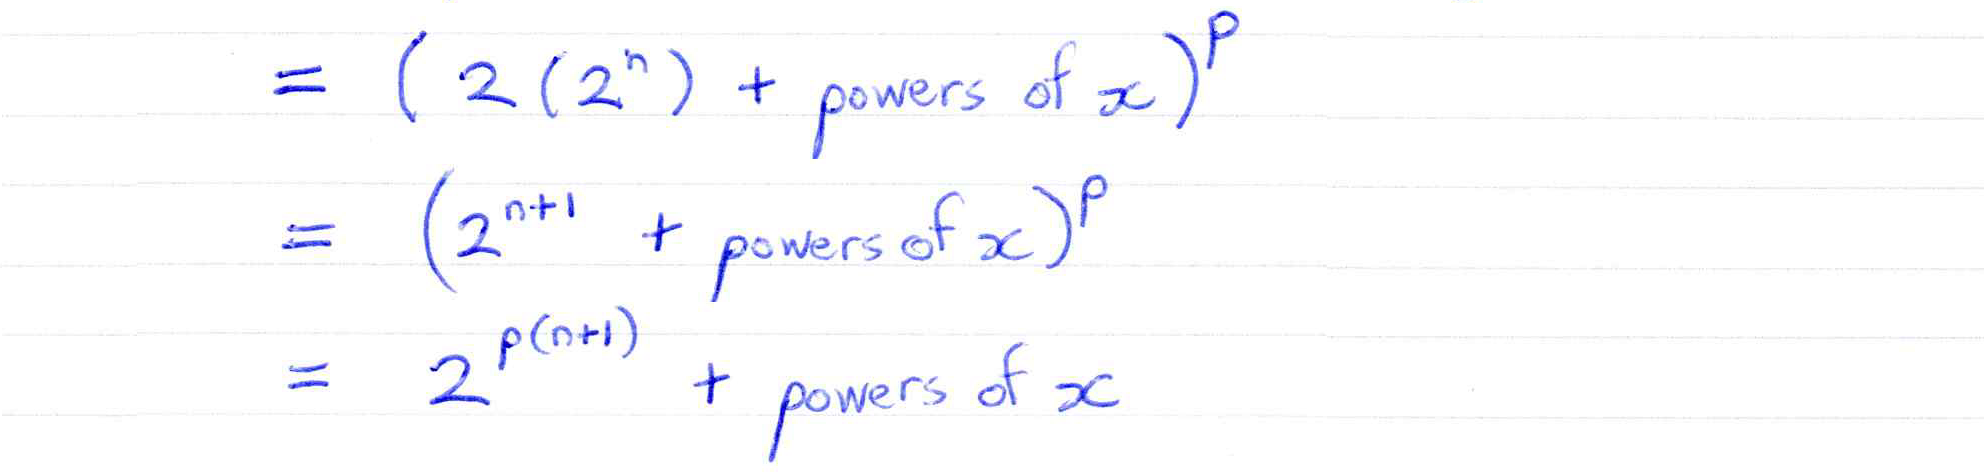 = ( 2 (2ⁿ) + powers of x )ᵖ
= (2ⁿ⁺¹ + powers of x)ᵖ
= 2ᵖ⁽ⁿ⁺¹⁾ + powers of x